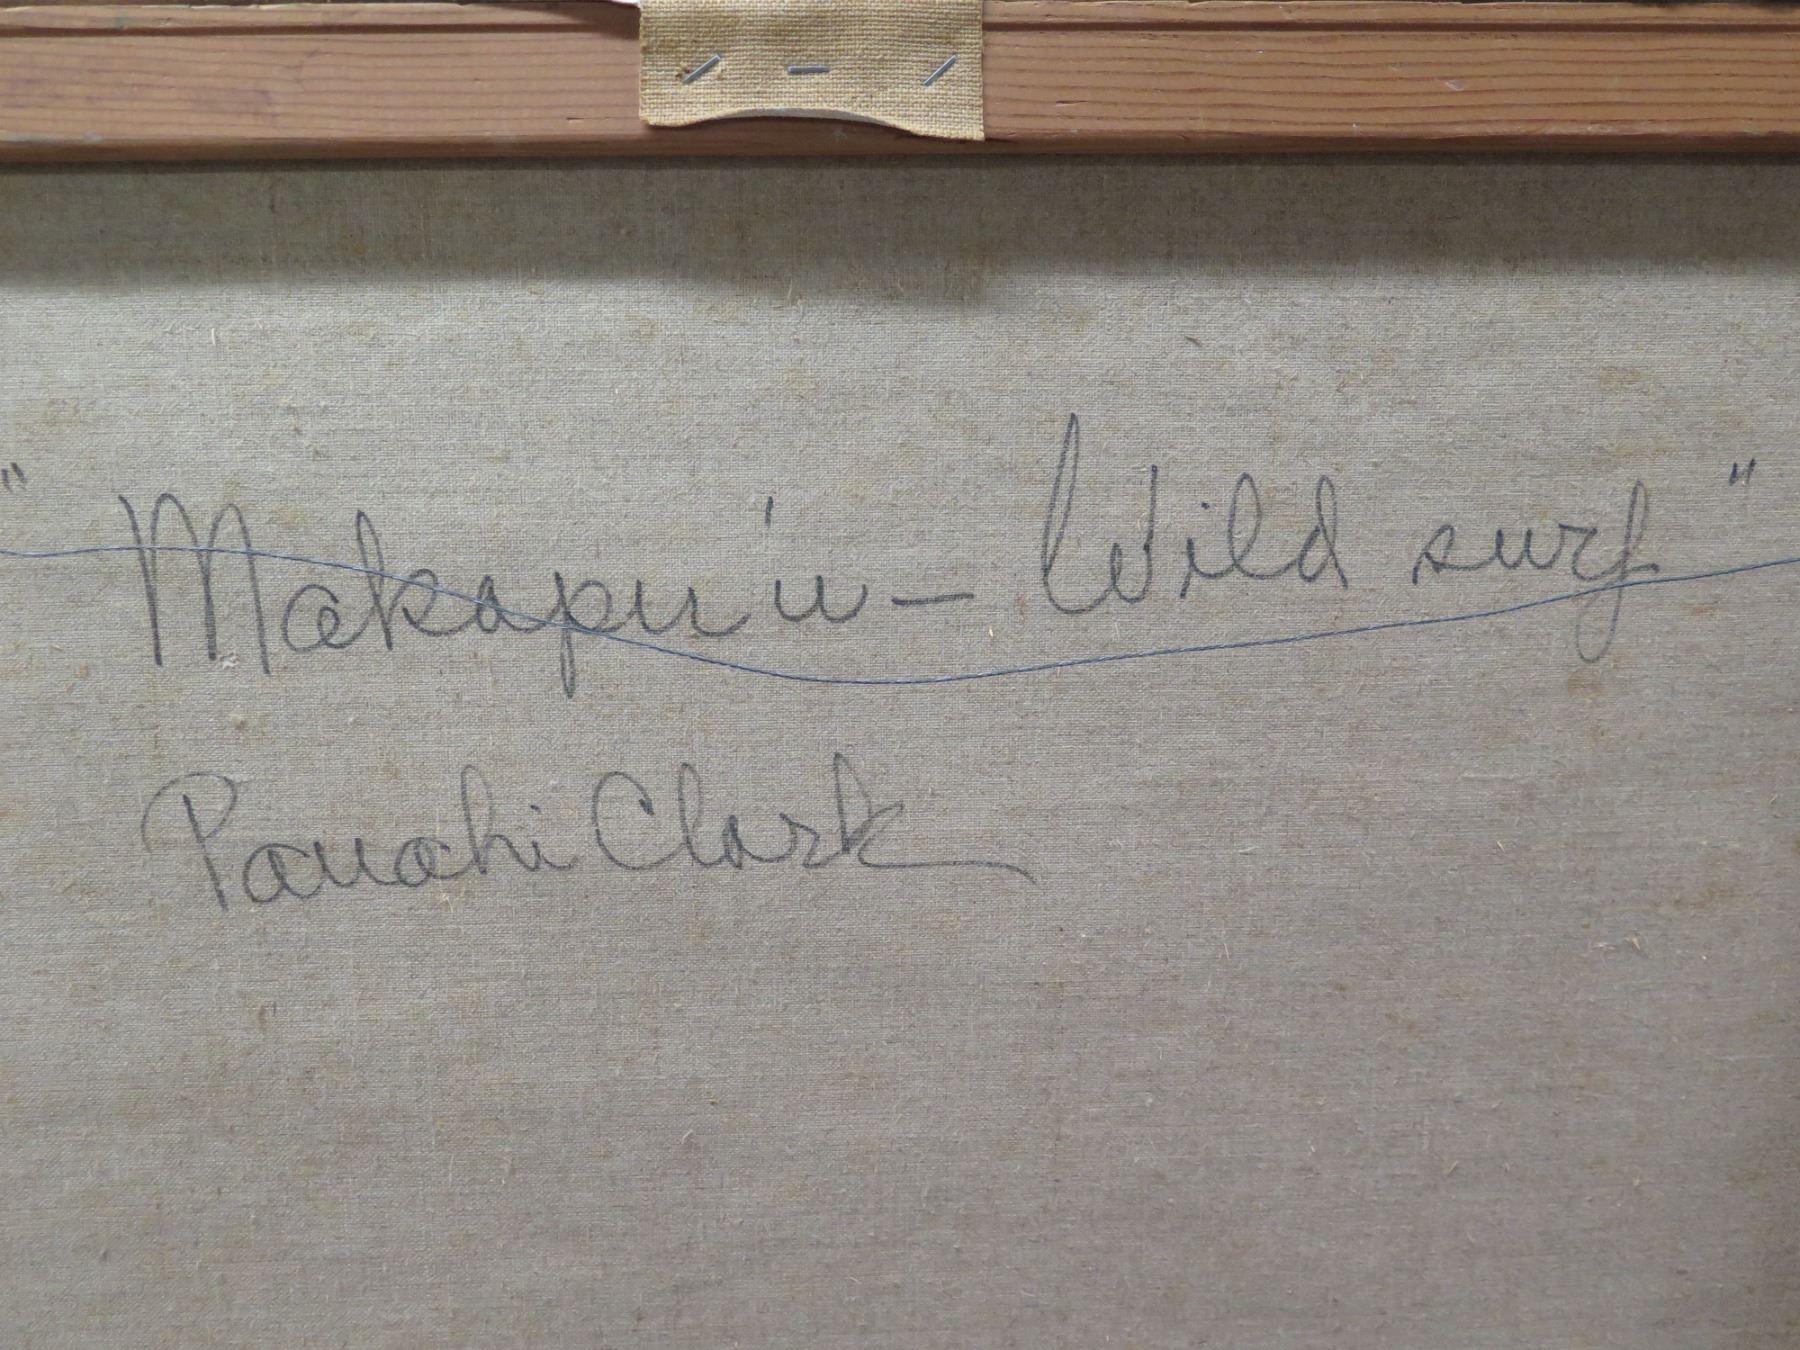 "Makapu'u – Wild surf"
Pauahi Clark